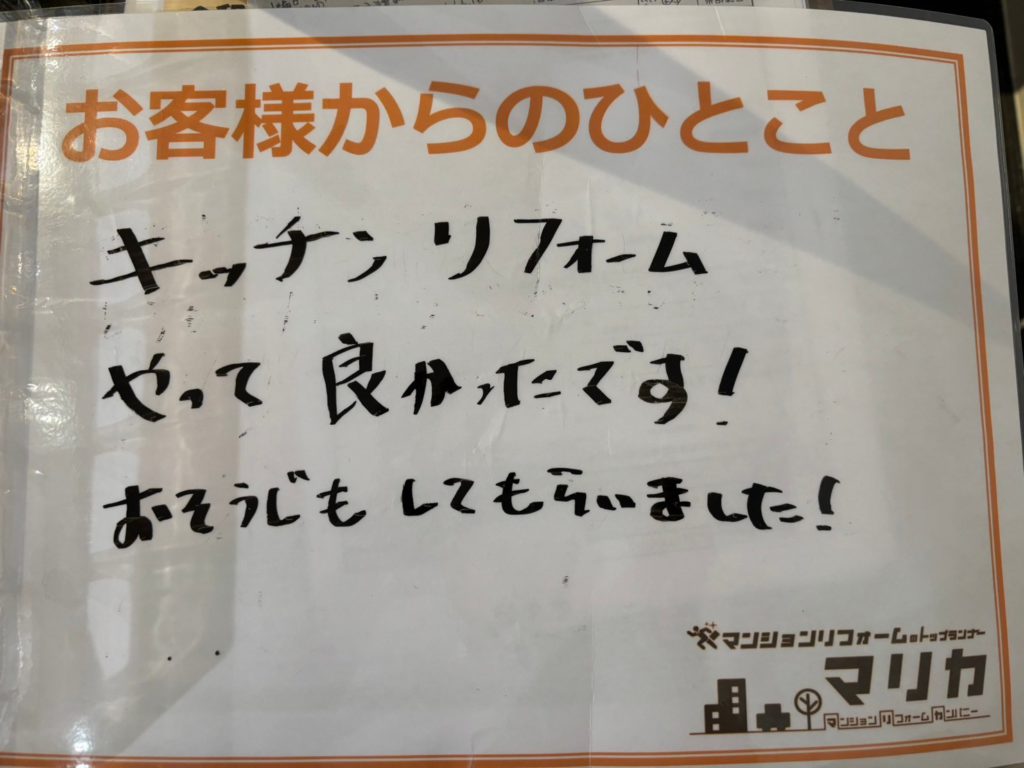 お客様からのひとこと
キッチンリフォーム
やって良かったです!
おそうじもしてもらいました!
マンションリフォームのトップランナー
マリカ
マンションリフォームカンパニー